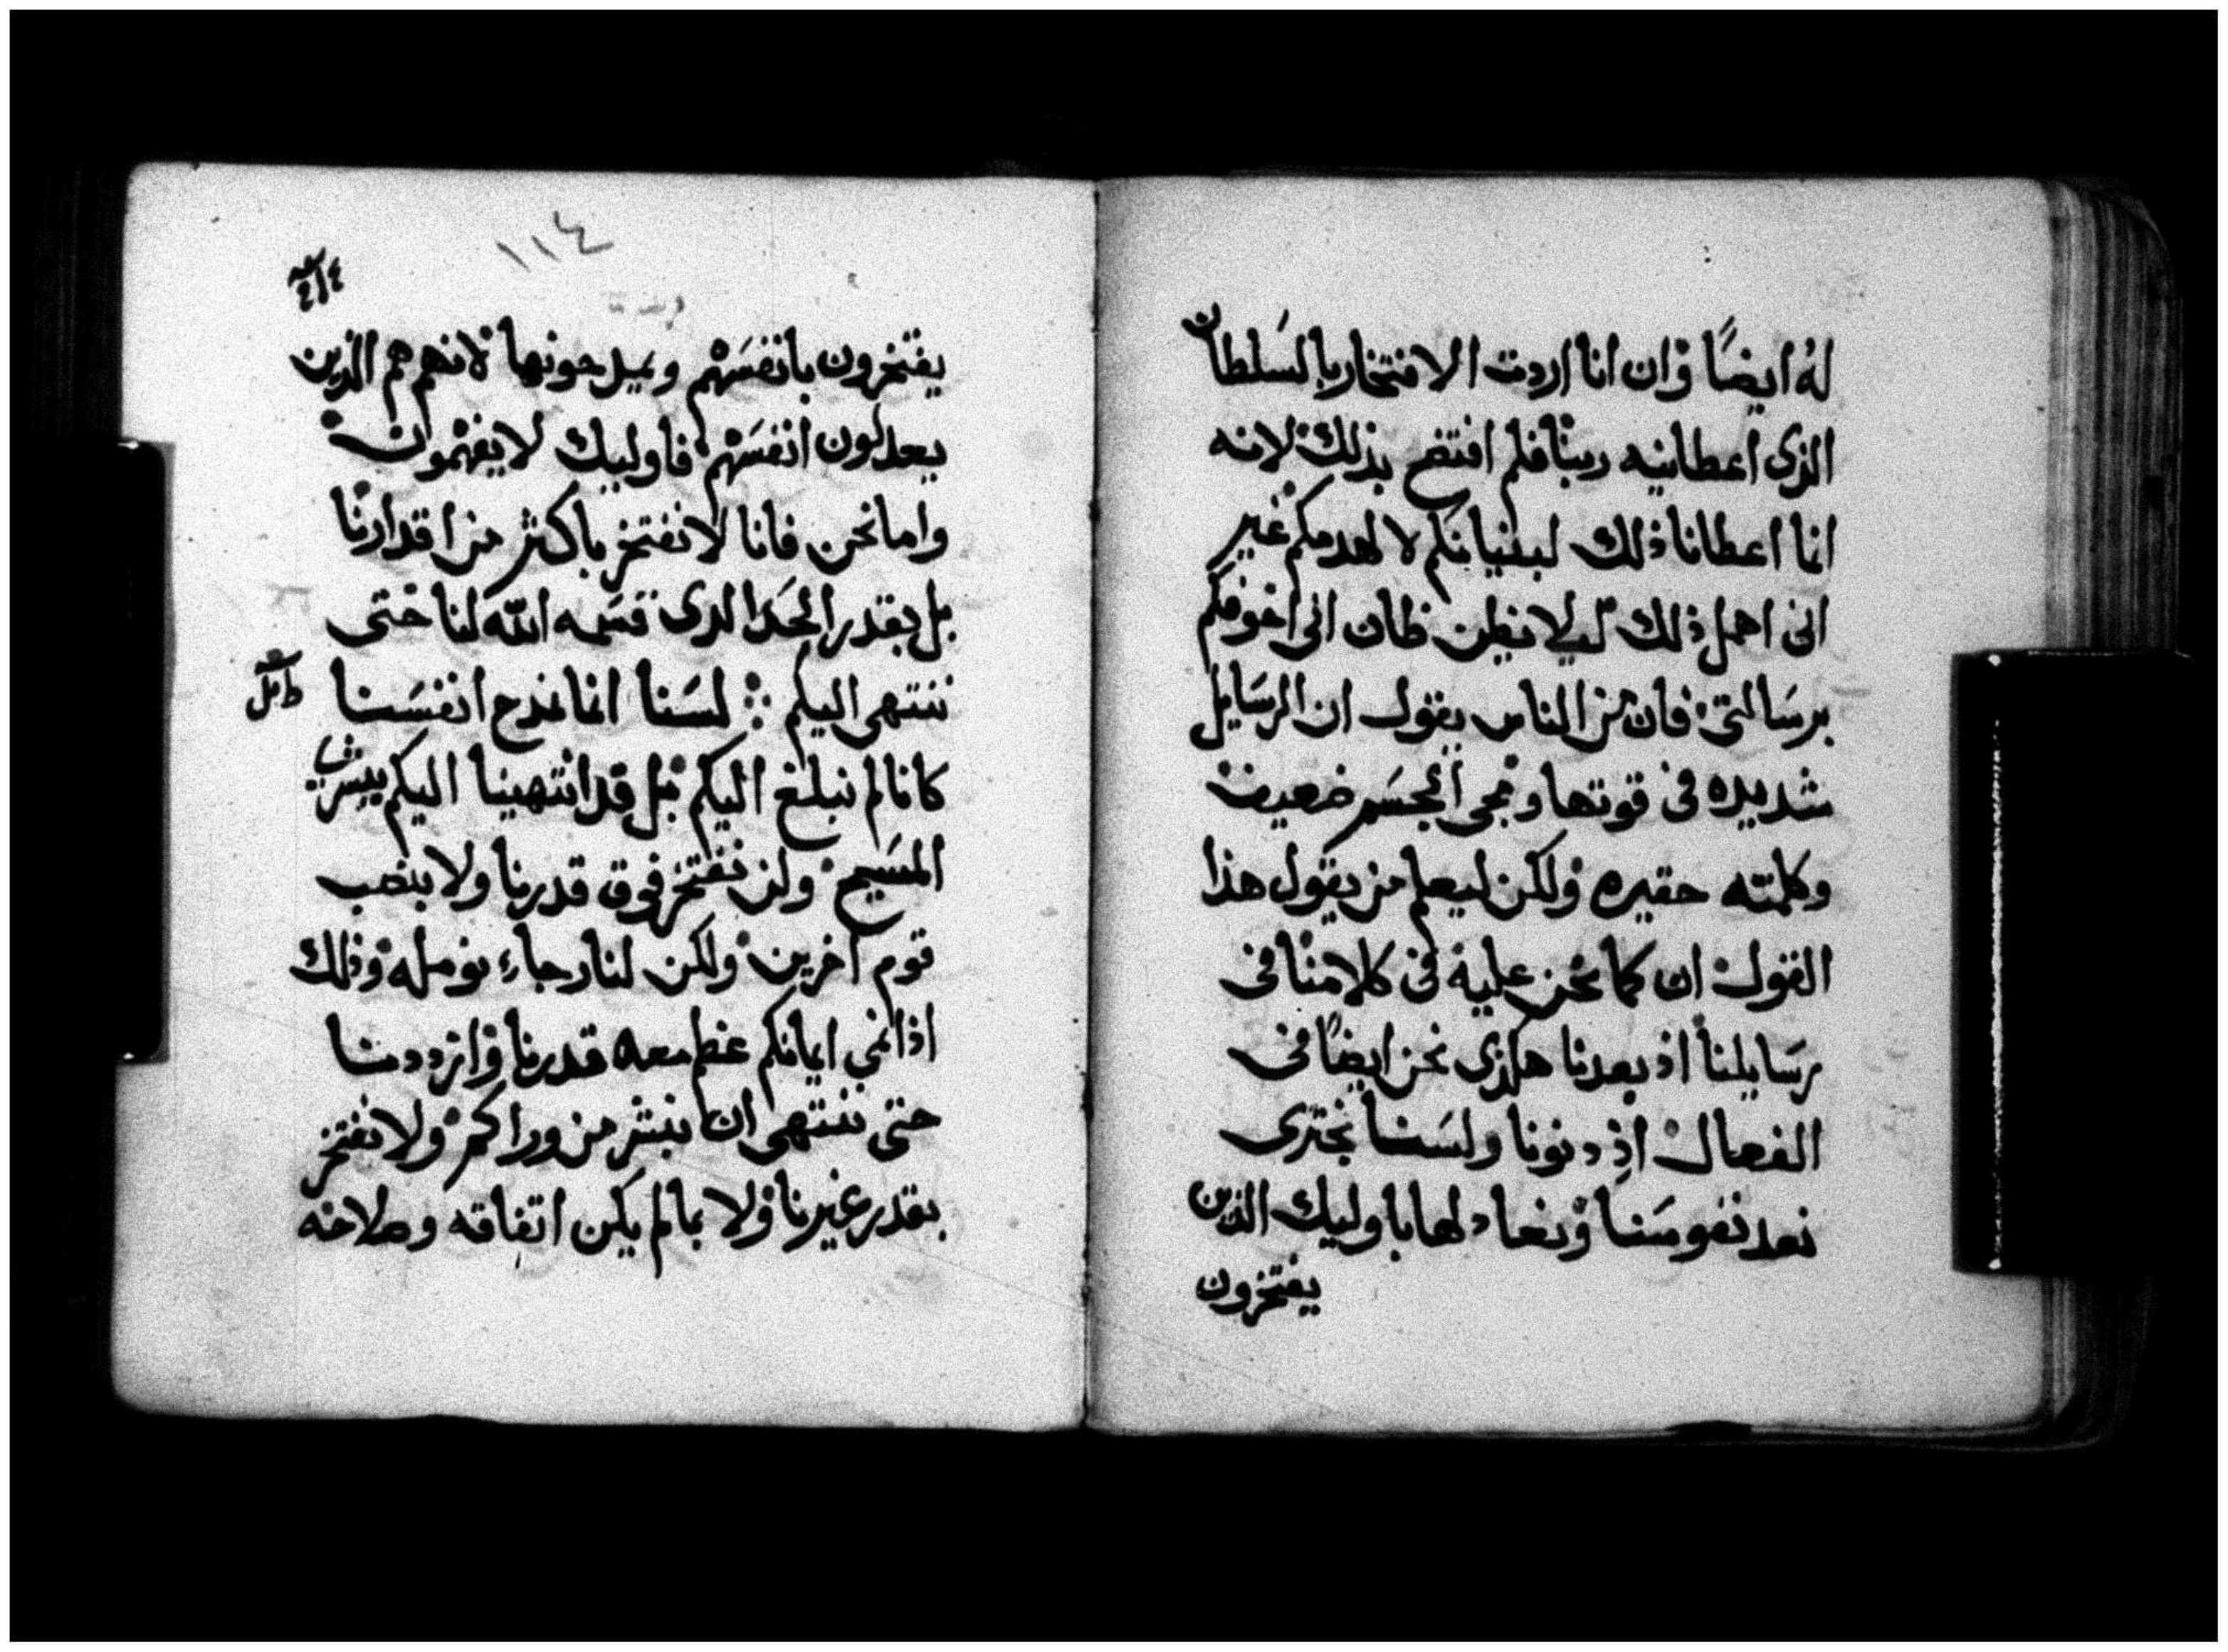 له ايضًا وان انا اردت الافتخار بالسلطان
الذى اعطانيه ربنا فلم افتضح بذلك لانه
انما اعطانا ذلك لبنيانكم لا لهدمكم غير
انى اهمل ذلك ليلا يظن ظان انى اخوفكم
برسالتى فان من الناس يقول ان الرسايل
شديده فى قوتها ومجى الجسم ضعيف
وكلمته حقيره ولكن ليعلم من يقول هذا
القول ان كما نحن عليه فى كلامنا فى
رسايلنا اذ بعدنا هكذى نحن ايضًا فى
الفعال اذ دنونا ولسنا نجترى
نعد نفوسنا ونعاد لها باوليك الذين
يفتخرون
١١٤
يفتخرون بانفسهم ويمدحونها لانهم هم الذين
يعدلون انفسهم فاوليك لا يفهمون
واما نحن فانا لا نفتخر باكثر من اقدارنا
بل بقدر الحد الدى قسمه الله لنا حتى
ننتهى اليكم لسنا انما نمدح انفسنا
كانا لم نبلغ اليكم بل قد انتهينا اليكم ببشرى
المسيح ولن نفتخر فوق قدرنا ولا بنصب
قوم اخرين ولكن لنا رجاء نومله وذلك
اذا نمى ايمانكم عظم معه قدرنا وازددنا
حتى ننتهى ان نبشر من وراكم ولا نفتخر
بقدر غيرنا ولا بما لم يكن اتفاقه وصلاحه